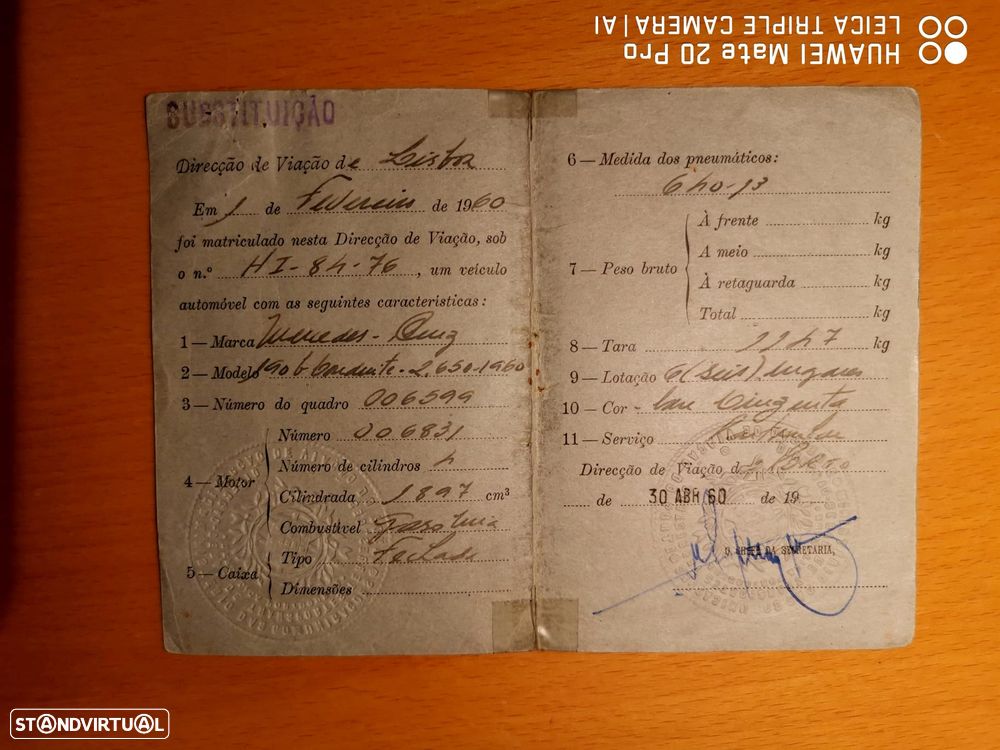 HUAWEI Mate 20 Pro
LEICA TRIPLE CAMERA | AI
SUBSTITUIÇÃO
Direcção de Viação de Lisboa
Em 1 de Fevereiro de 1960
foi matriculado nesta Direcção de Viação, sob
o n.º HI-84-76, um veículo
automóvel com as seguintes características:
1 — Marca Mercedes-Benz
2 — Modelo 190 b 2.650-1960
3 — Número do quadro 006599
4 — Motor
Número 006831
Número de cilindros 4
Cilindrada 1897 cm³
Combustível Gasolina
5 — Caixa
Tipo Fechada
Dimensões
6 — Medida dos pneumáticos:
640-13
7 — Peso bruto
À frente kg
A meio kg
À retaguarda kg
Total kg
8 — Tara kg
9 — Lotação 6 (seis) lugares
10 — Cor - cinzenta
11 — Serviço Particular
Direcção de Viação d
de 30 ABR 60 de 19
O CHEFE DA SECRETARIA,
STANDVIRTUAL